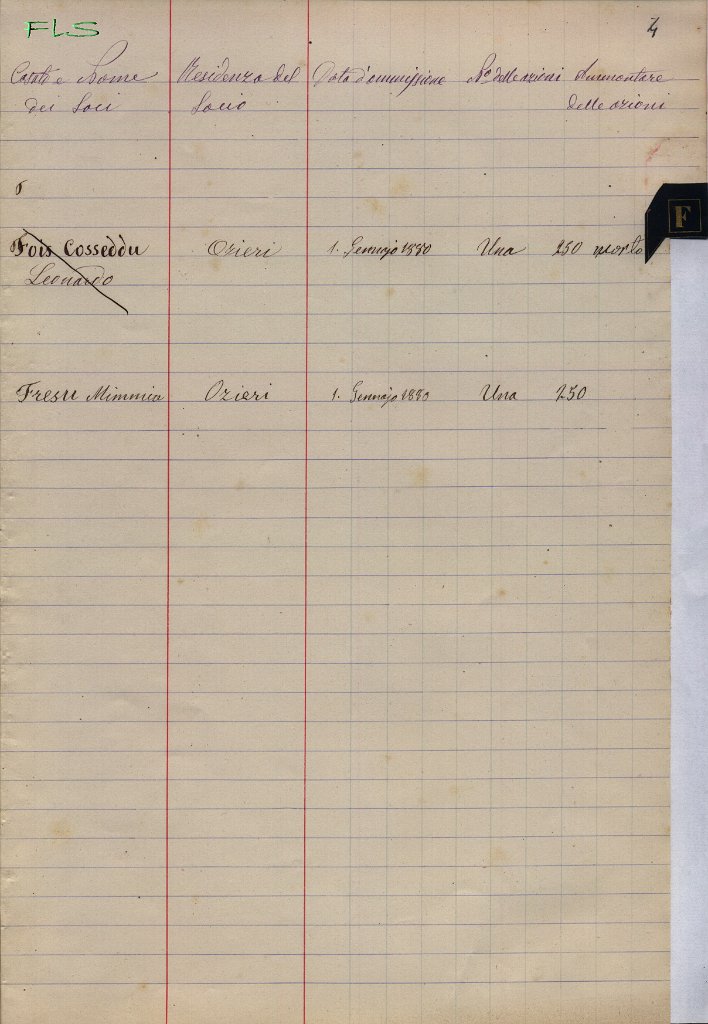 FLS
4
Casato e Nome Residenza del Data d'ammissione No delle azioni Ammontare
dei Soci Socio delle azioni
F
Fois Cosseddu Ozieri 1. Gennajo 1880 Una 250 morto
Leonardo
Fresu Mimmia Ozieri 1. Gennajo 1880 Una 250